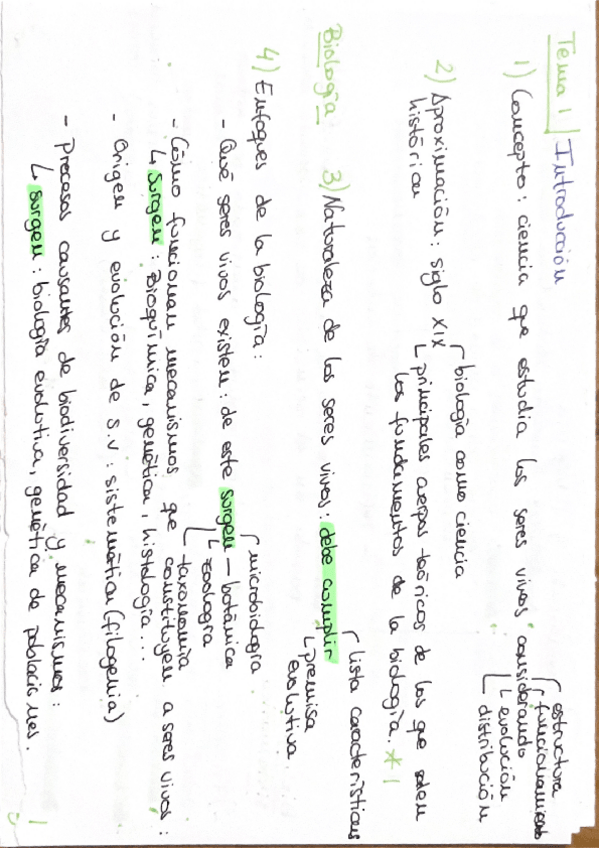 Tema 1 Introducción
estructura
funcionamiento
1) Concepto: ciencia que estudia los seres vivos considerando
evolución
distribución
biología como ciencia
2) Aproximación: siglo XIX
histórica
principales cuerpos teóricos de los que salen
los fundamentos de la biología. *1
Biología
lista características
3) Naturaleza de los seres vivos: debe cumplir
premisa
evolutiva
4) Enfoques de la biología:
microbiología
- Qué seres vivos existen: de este surgen - botánica
zoología
taxonomía
- Cómo funcionan mecanismos que constituyen a seres vivos:
surgen: Bioquímica, genética, histología...
- Origen y evolución de s.v: sistemática (filogenia)
- Procesos causantes de biodiversidad y mecanismos:
surgen: biología evolutiva, genética de poblaciones.
1